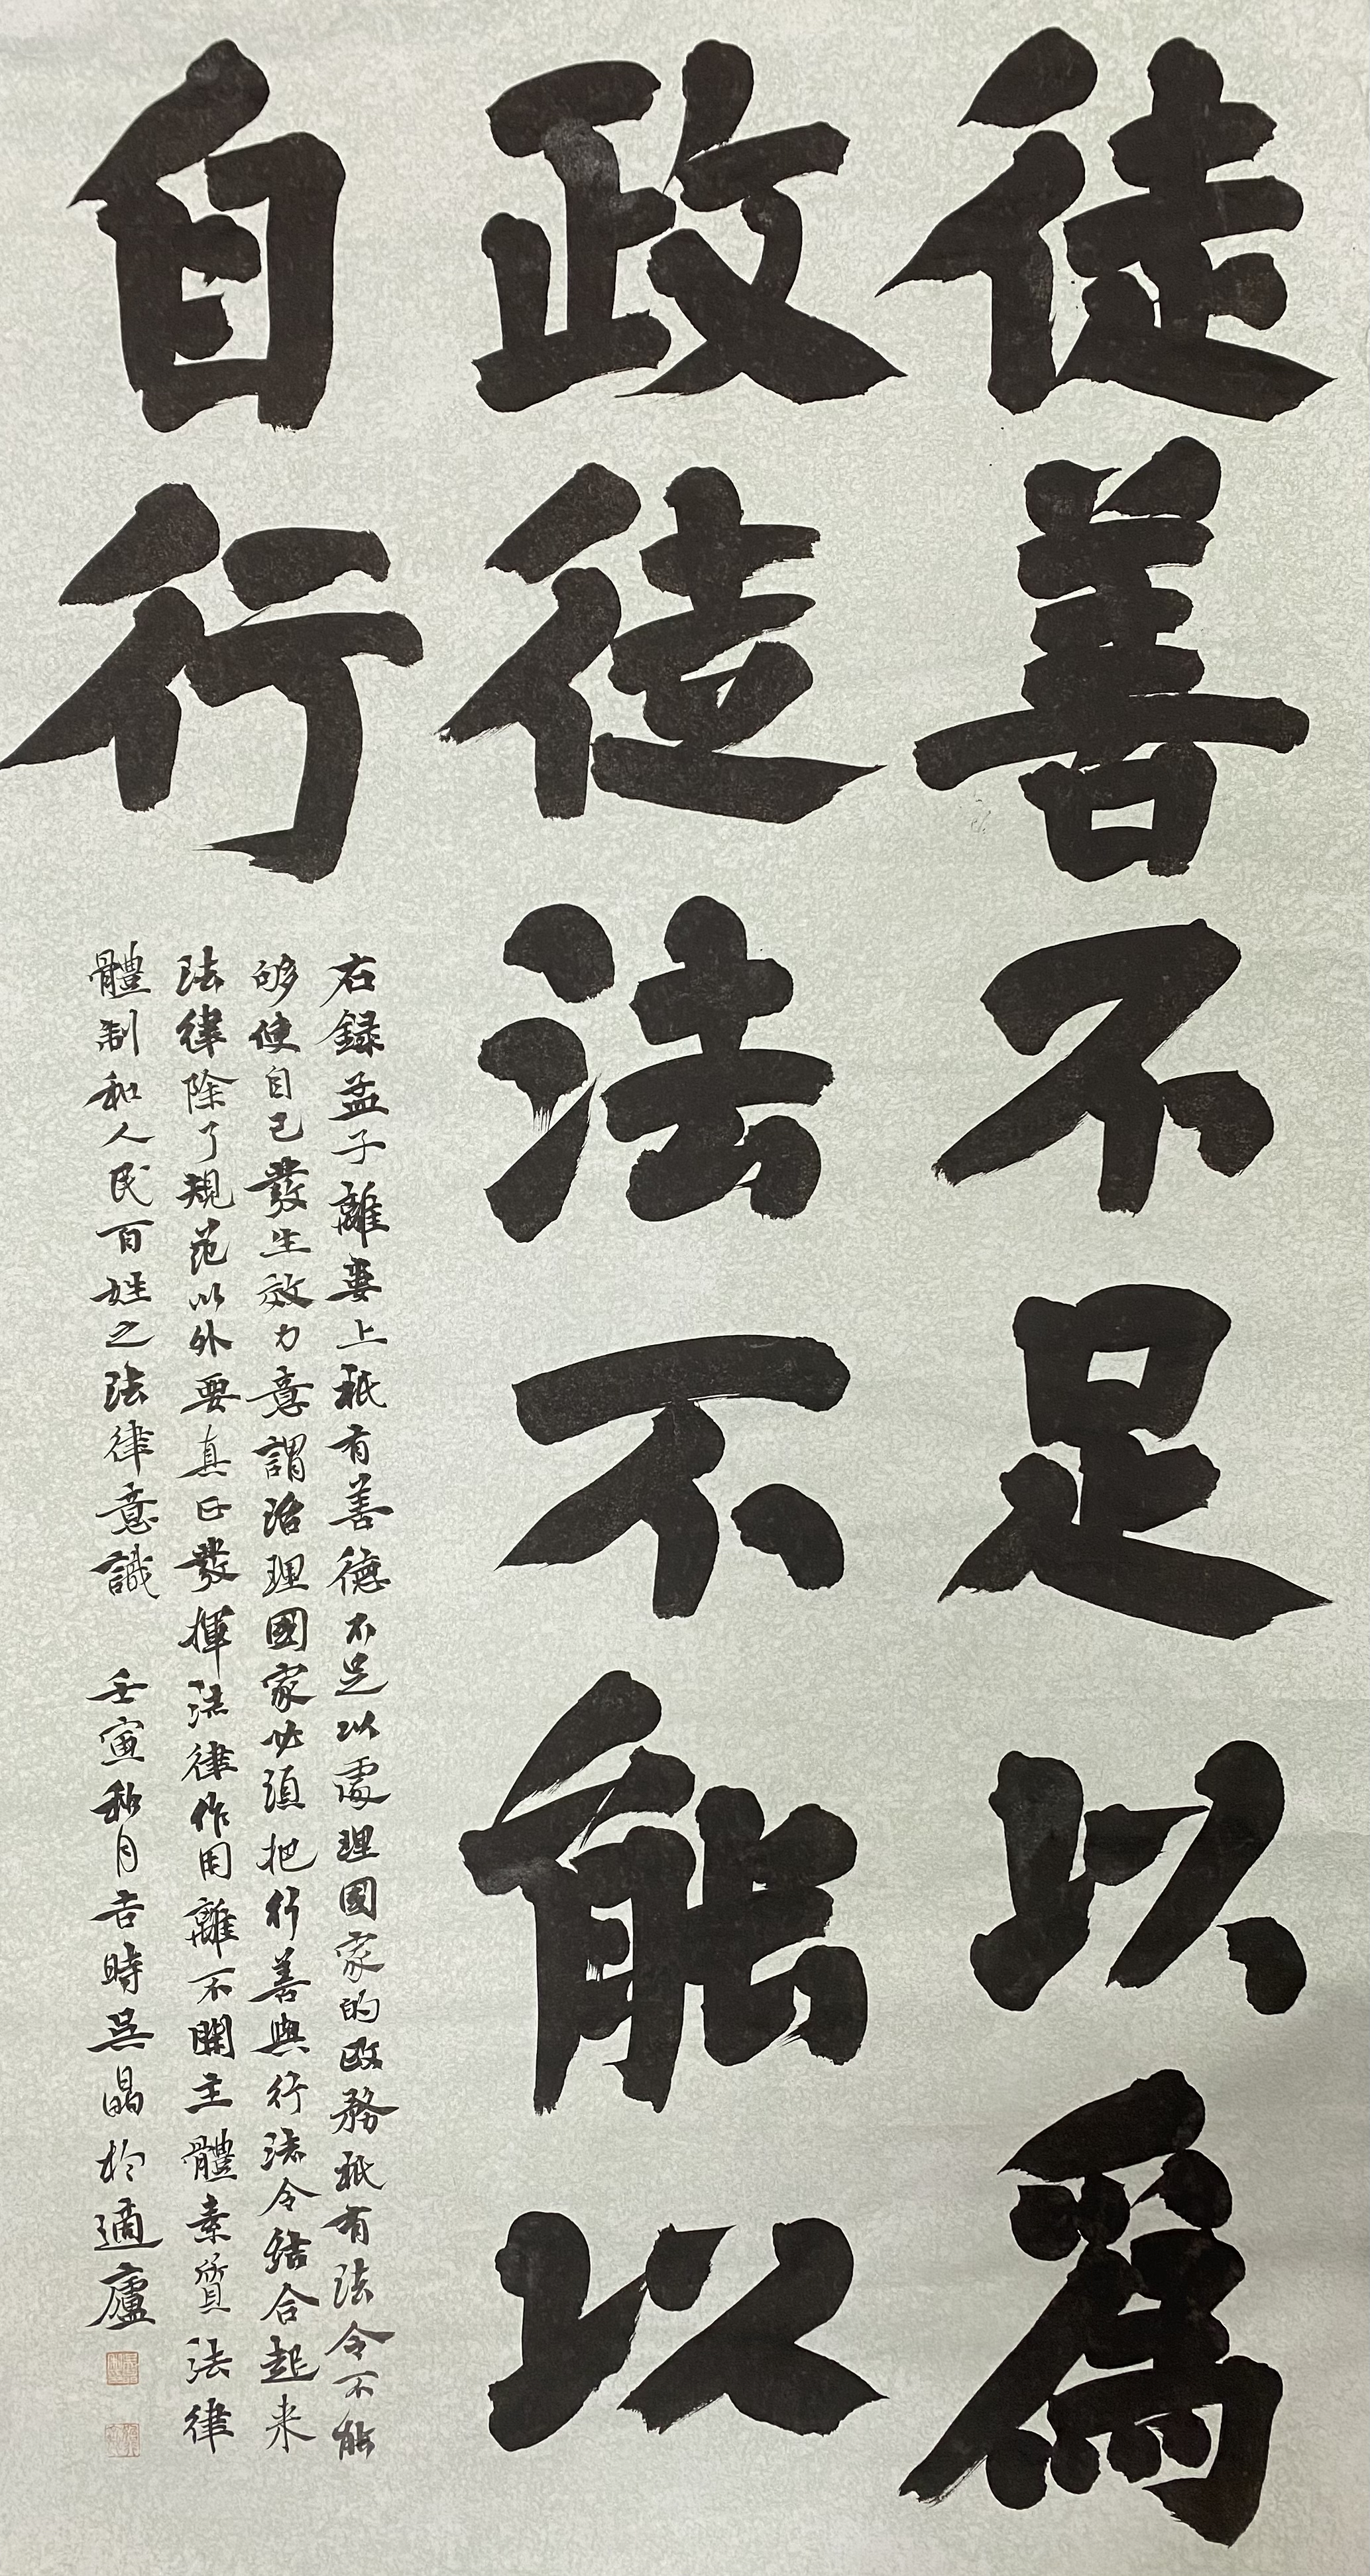 徒善不足以爲
政徒法不能以
自行
右録孟子離婁上秖有善德不足以處理國家的政務秖有法令不能
够使自己發生效力意謂治理國家必須把行善與行法令結合起来
法律除了規范以外要真正發揮法律作用離不開主體素質法律
體制和人民百姓之法律意識 壬寅秋月吉時吴晶於適廬